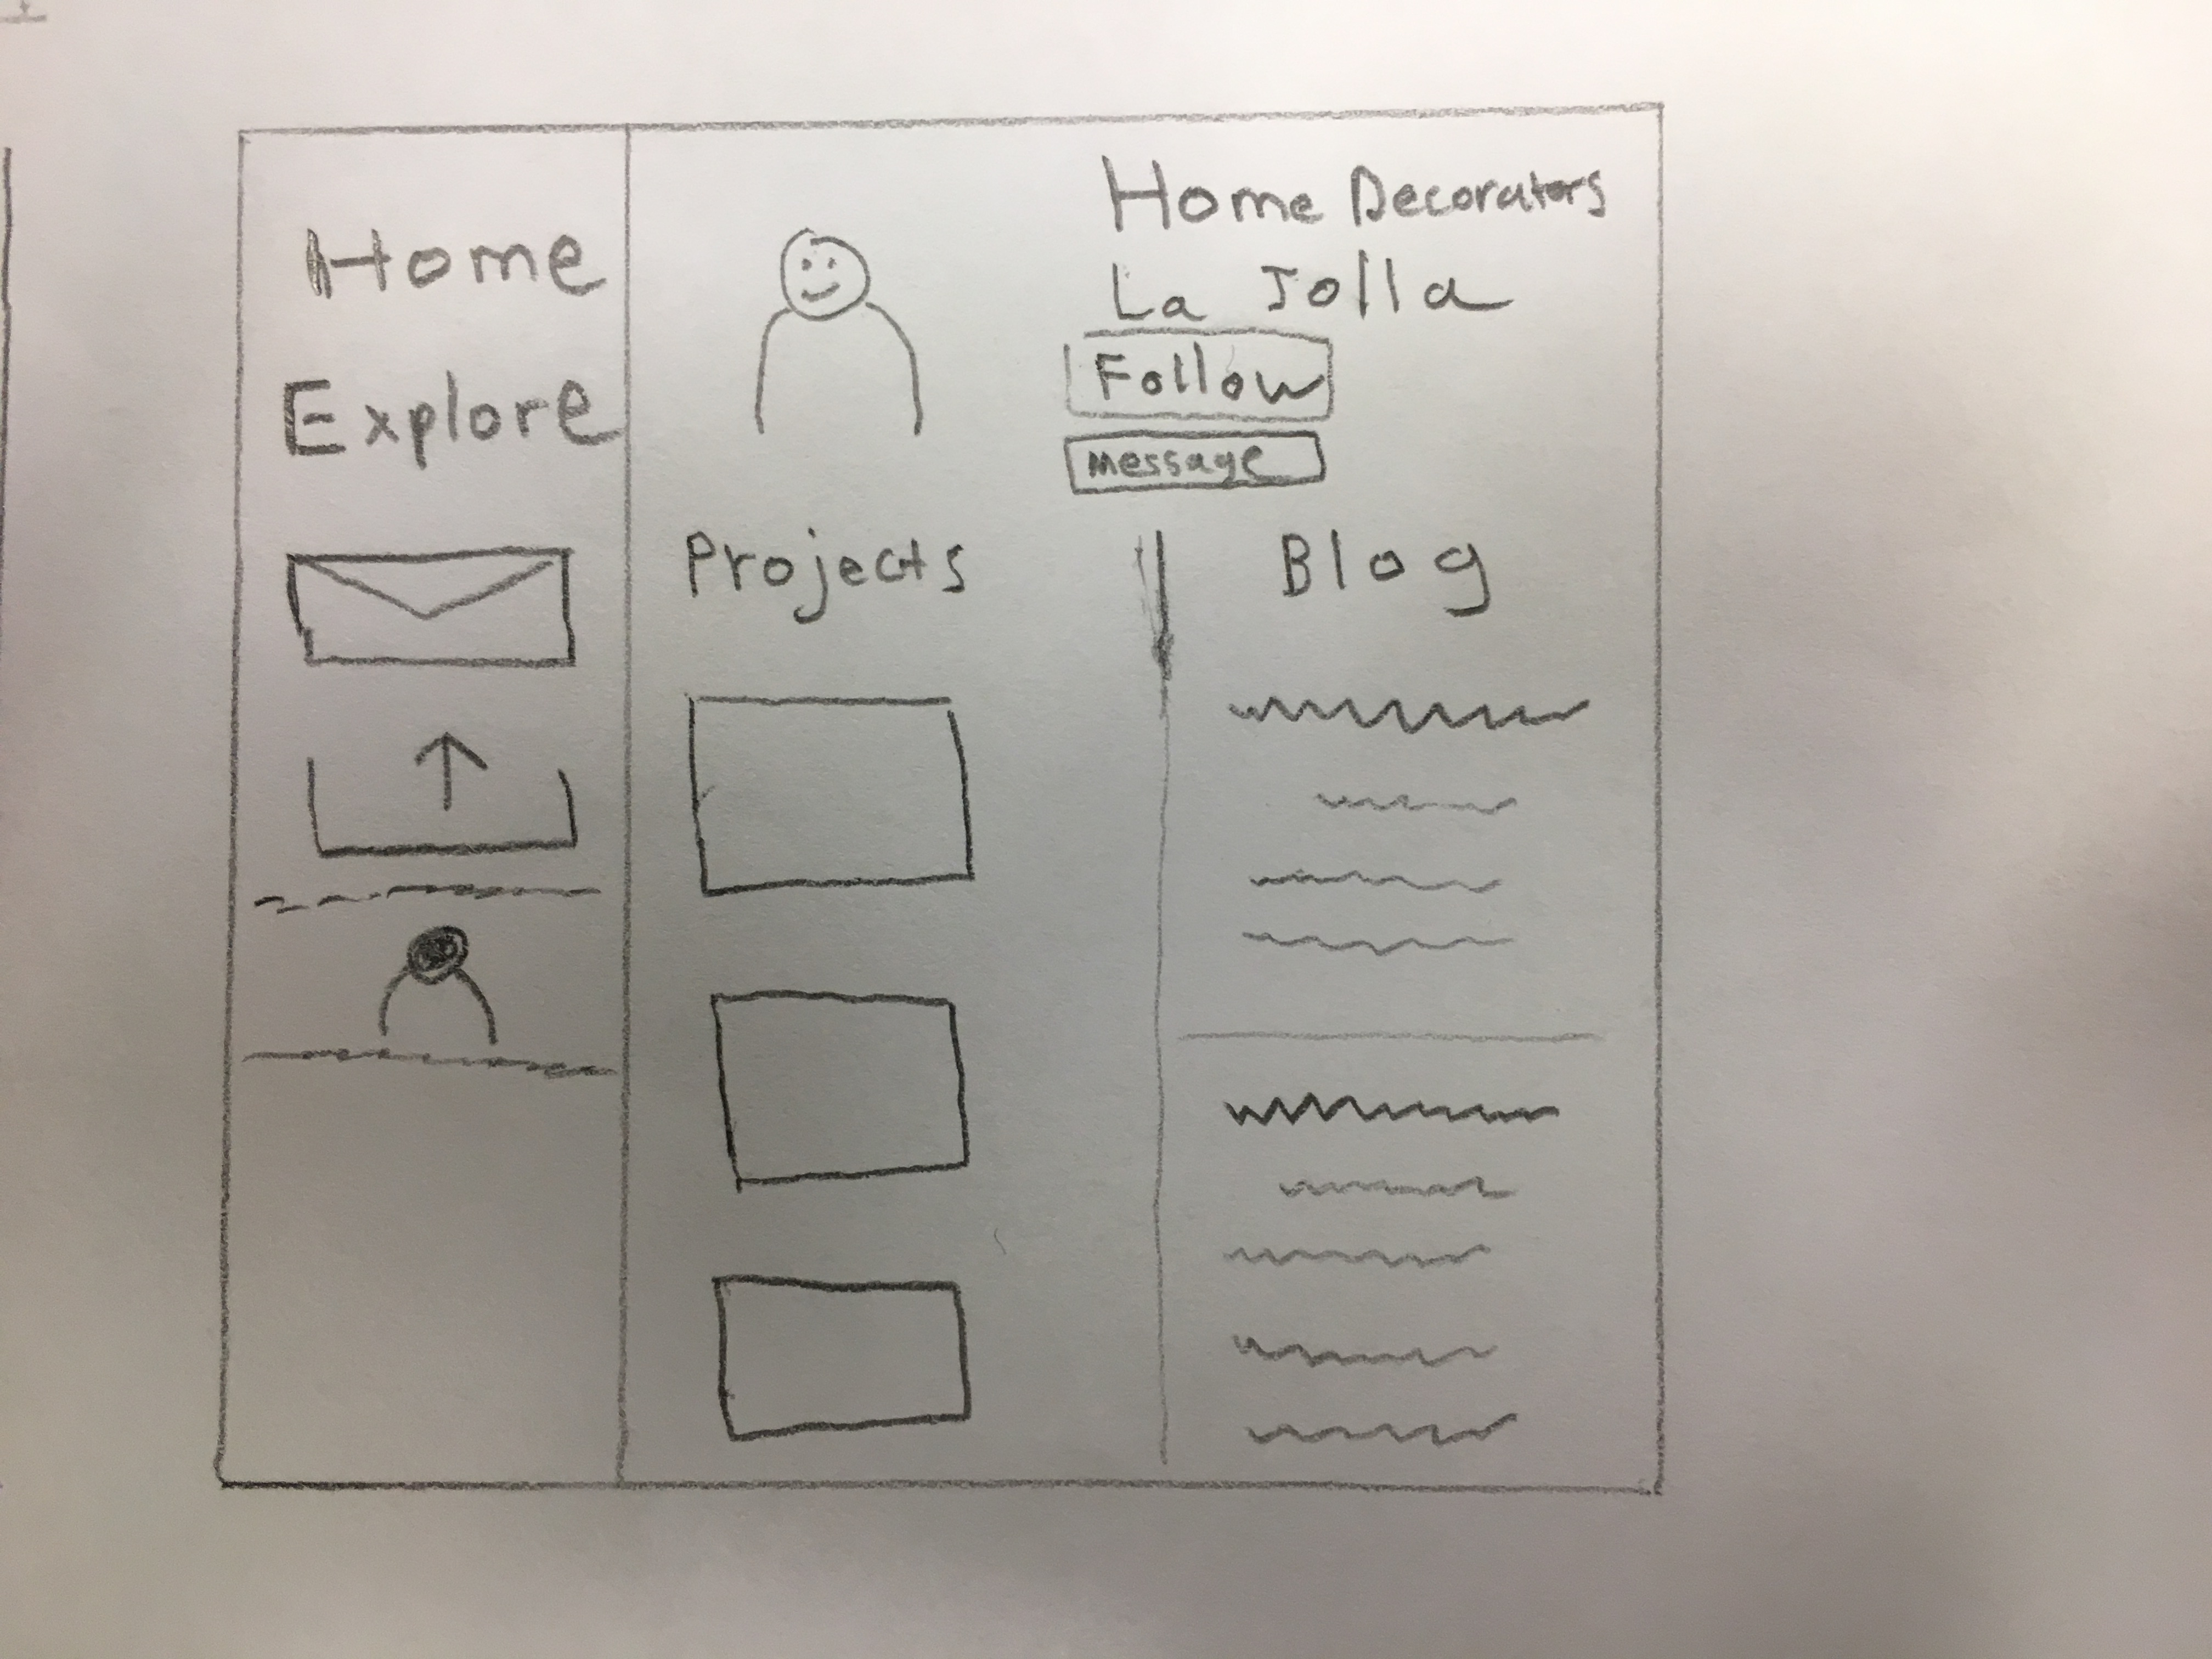 Home
Explore
Home Decorators
La Jolla
Follow
Message
Projects
Blog